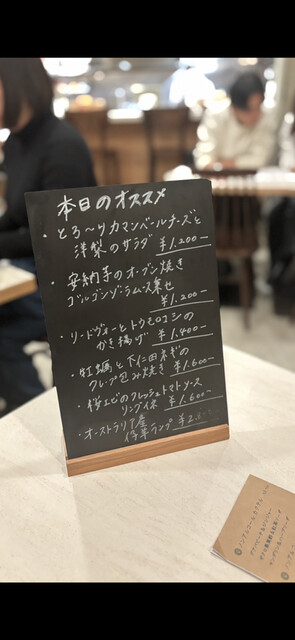 本日のオススメ
・とろ〜りカマンベールチーズと
洋梨のサラダ ¥1.200-
・安納芋のオーブン焼き
ゴルゴンゾーラムース乗せ
¥1.200-
・リードヴォーとトウモロコシの
かき揚げ ¥1.400-
・牡蠣と下仁田ネギの
クレープ包み焼き ¥1.600-
・桜エビのフレッシュトマトソース
¥1.600-
・オーストラリア産
仔羊ランプ